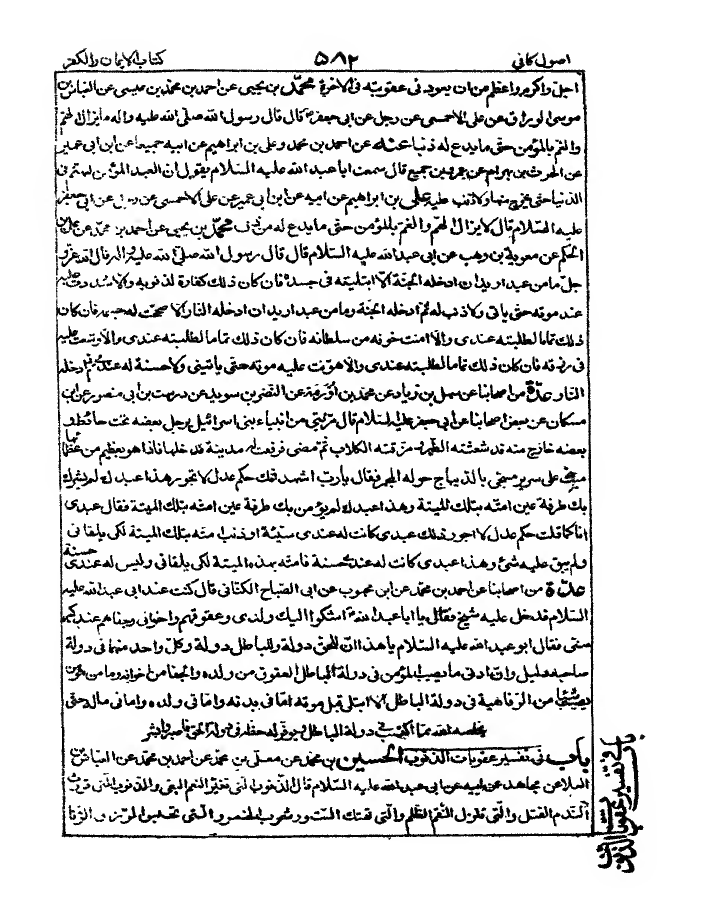 اصول كافى ٥٨٢ كتاب الايمان والكفر
اجلّ واكرم واعظم من ان يعود فى عقوبته فى الاخرة محمّد بن يحيى عن احمد بن محمّد بن عيسى عن العباس بن
موسى الوراق عن على الاحمسى عن رجل عن ابى جعفر ع قال قال رسول الله صلّى الله عليه واله ما يزال الهمّ
والغم بالمؤمن حتى ما يدع له ذنبا عنه عن احمد بن محمد وعلى بن ابراهيم عن ابيه جميعا عن ابن ابى عمير
عن الحرث بن بهرام عن عمرو بن جميع قال سمعت ابا عبد الله عليه السلام يقول ان العبد المؤمن ليهتم فى
الدنيا حتى يخرج منها ولا ذنب عليه على بن ابراهيم عن ابيه عن ابن ابى عمير عن على الاحمسى عن رجل عن ابى جعفر
عليه السّلام قال لا يزال الهمّ والغم بالمؤمن حتى ما يدع له من ذنب محمّد بن يحيى عن احمد بن محمّد عن على بن
الحكم عن معوية بن وهب عن ابى عبد الله عليه السلام قال قال رسول الله صلّى الله عليه واله قال الله عزّ و
جلّ ما من عبد اريد ان ادخله الجنّة الا ابتليته فى جسده فان كان ذلك كفارة لذنوبه والا شددت عليه
عند موته حتى ياتى ولا ذنب له ثم ادخله الجنّة وما من عبد اريد ان ادخله النار الا صححت له جسمه فان كان
ذلك تماما لطلبته عندى والا امنت خوفه من سلطانه فان كان ذلك تماما لطلبته عندى والا وسّعت عليه
فى رزقه فان كان ذلك تماما لطلبته عندى والا هوّنت عليه موته حتى ياتينى ولا حسنة له عندى ثم ادخله
النار عدّة من اصحابنا عن سهل بن زياد عن محمّد بن اورمة عن النضر بن سويد عن درست بن ابى منصور عن ابن
مسكان عن بعض اصحابنا عن ابى جعفر عليه السلام قال مرّ نبىّ من انبياء بنى اسرائيل برجل بعضه تحت حائط و
بعضه خارج منه قد شعثته الطير ومزّقته الكلاب ثم مضى فرفعت له مدينة فدخلها فاذا هو بعظيم من عظمائها
ميّت على سرير مسجّى بالديباج حوله المجمر فقال يا ربّ اشهد انك حكم عدل لا تجور هذا عبدك لم يشرك
بك طرفة عين امتّه بتلك الميتة وهذا عبدك لم يؤمن بك طرفة عين امتّه بتلك الميتة فقال عبدى
انا كما قلت حكم عدل لا اجور ذلك عبدى كانت له عندى سيّئة او ذنب امتّه بتلك الميتة لكى يلقانى
ولم يبق عليه شئ وهذا عبدى كانت له عندى حسنة فامتّه بهذه الميتة لكى يلقانى وليس له عندى حسنة
عدّة من اصحابنا عن احمد بن محمّد عن ابن محبوب عن ابى الصباح الكنانى قال كنت عند ابى عبد الله عليه
السلام فدخل عليه شيخ فقال يا ابا عبد الله اشكوا اليك ولدى وعقوقهم واخوانى وجفاهم عند كبر
سنّى فقال ابو عبد الله عليه السلام يا هذا انّ للحق دولة وللباطل دولة وكلّ واحد منهما فى دولة
صاحبه ذليل وانّ ادنى ما يصيب المؤمن فى دولة الباطل العقوق من ولده والجفا من اخوانه وما من مؤمن
يصيبه شيئا من الرّفاهية فى دولة الباطل الا ابتلى قبل موته امّا فى بدنه وامّا فى ولده وامّا فى ماله حتى
يخلصه الله مما اكتسب فى دولة الباطل ويوفّر له حظّه فى دولة الحق فاصبر وابشر
باب فى تفسير عقوبات الذنوب الحسين بن محمّد عن معلّى بن محمّد عن احمد بن محمّد عن العباس بن
العلا عن مجاهد عن ابيه عن ابى عبد الله عليه السّلام قال الذنوب التى تغيّر النعم البغى والذنوب التى تورث
الندم القتل والتى تنزل النّقم الظلم والتى تهتك الستور شرب الخمر والتى تحبس الرزق الزنا
باب فى تفسير عقوبات الذنوب